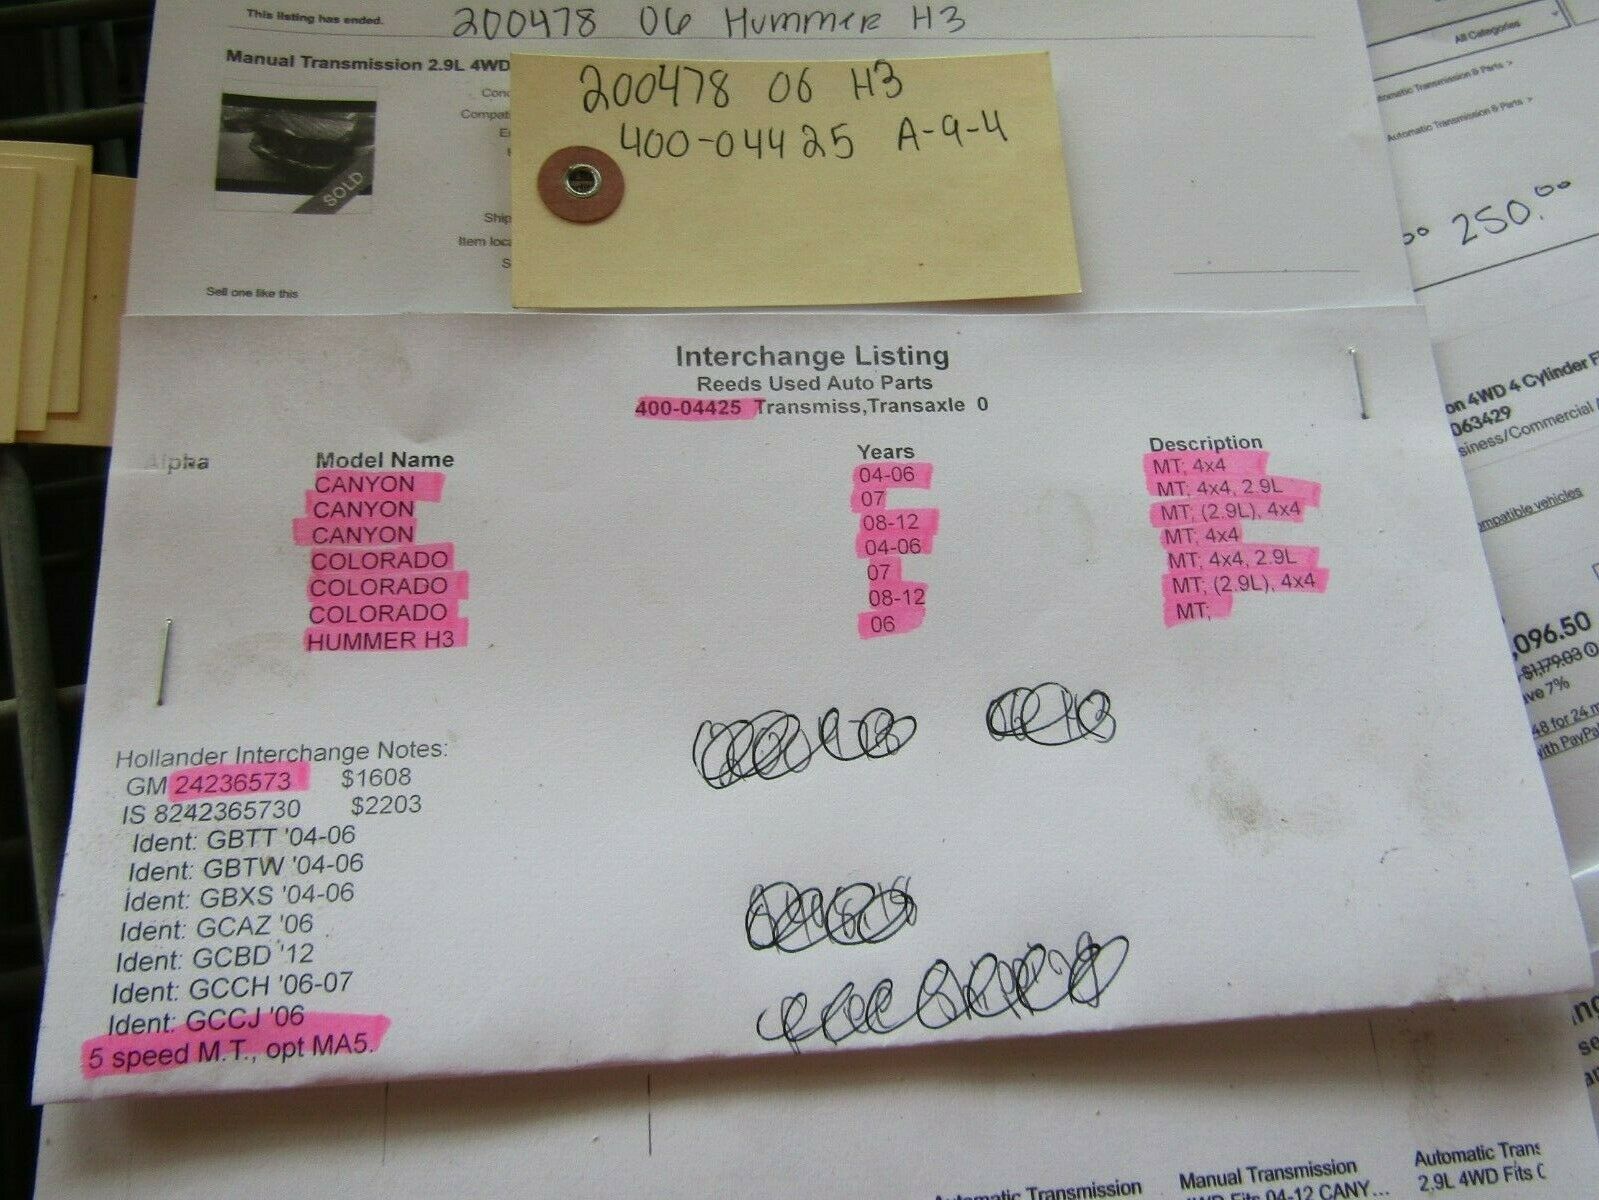 This listing has ended.
200478 06 Hummer H3
Manual Transmission 2.9L 4WD
Shi
Item loc
SOLD
Sell one like this
200478 06 H3
400-04425 A-9-4
All Categories
Automatic Transmission & Parts >
250.00
Interchange Listing
Reeds Used Auto Parts
400-04425 Transmiss,Transaxle 0
Alpha Model Name Years Description
CANYON 04-06 MT; 4x4
CANYON 07 MT; 4x4, 2.9L
CANYON 08-12 MT; (2.9L), 4x4
COLORADO 04-06 MT; 4x4
COLORADO 07 MT; 4x4, 2.9L
COLORADO 08-12 MT; (2.9L), 4x4
HUMMER H3 06 MT;
Hollander Interchange Notes:
GM 24236573 $1608
IS 8242365730 $2203
Ident: GBTT '04-06
Ident: GBTW '04-06
Ident: GBXS '04-06
Ident: GCAZ '06
Ident: GCBD '12
Ident: GCCH '06-07
Ident: GCCJ '06
5 speed M.T., opt MA5.
on 4WD 4 Cylinder F
063429
siness/Commercial
mpatible vehicles
,096.50
$1,179.03
ve 7%
48 for 24 m
with PayPa
Automatic Transmission
Manual Transmission
4WD Fits 04-12 CANY...
Automatic Trans
2.9L 4WD Fits C